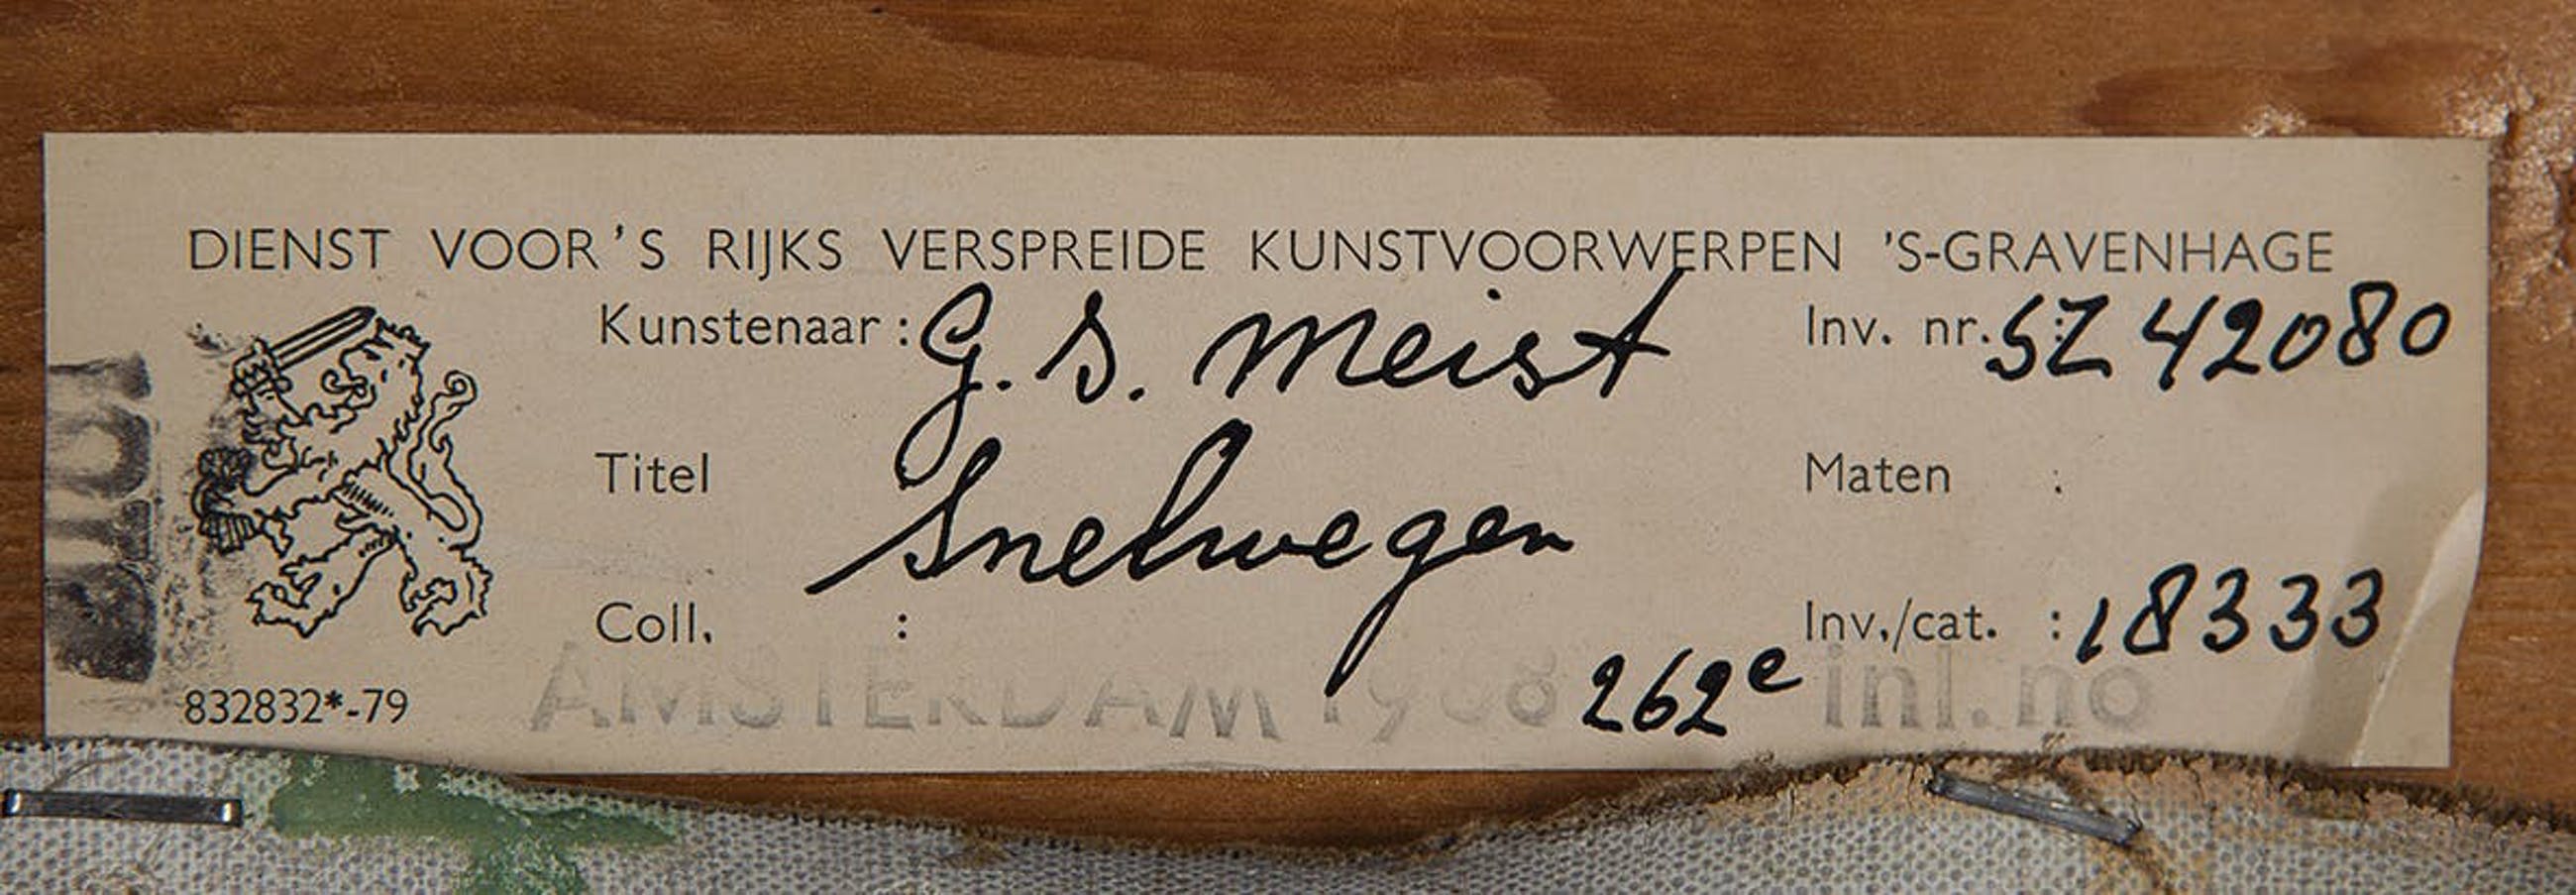 DIENST VOOR 'S RIJKS VERSPREIDE KUNSTVOORWERPEN 'S-GRAVENHAGE
Kunstenaar : G. S. Meist Inv. nr. : SZ 42080
Titel Snelwegen Maten :
Coll. : Inv./cat. : 18333
262e
832832*-79 AMSTERDAM 1968 inl. no